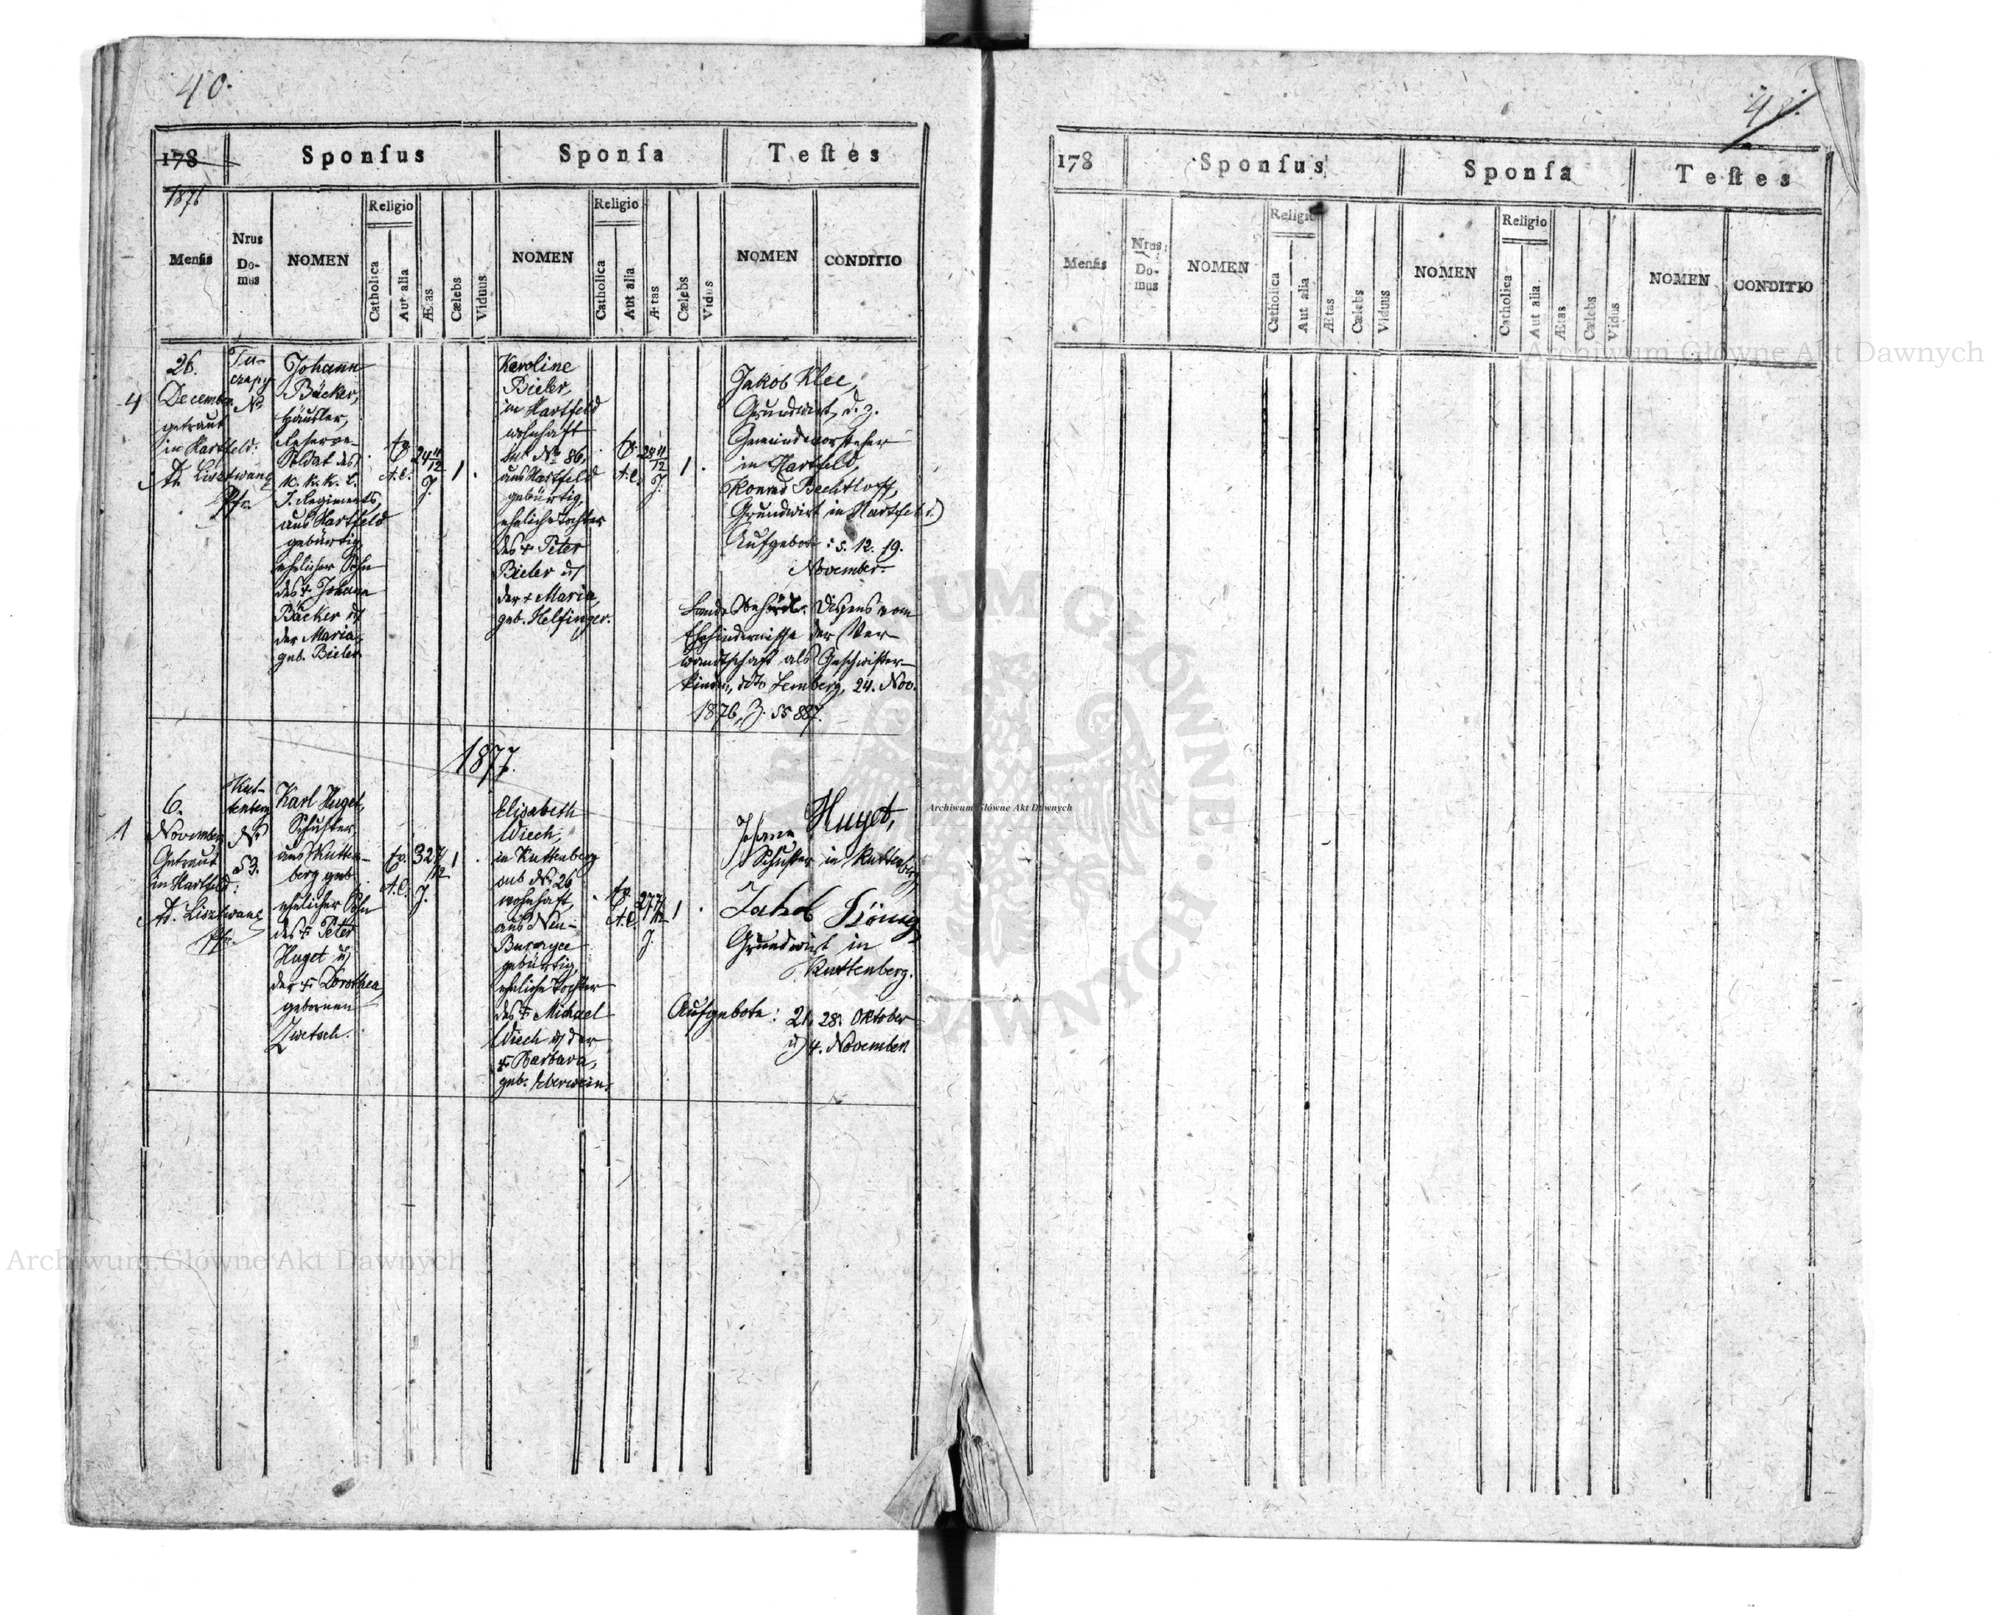 40.
178
Sponſus
Sponſa
Teſtes
1876
Menſis
Nrus
Do-
mus
NOMEN
Religio
Catholica
Aut alia
Ætas
Cælebs
Viduus
NOMEN
Religio
Catholica
Aut alia
Ætas
Cælebs
Vidus
NOMEN
CONDITIO
4
26.
December
getraut
in Hartfeld:
Ad. Lisztwan
Pfr.
Tu-
czapy
No
Johann
Bäcker,
Häusler,
Reserve-
Soldat des
k. k.
I. Regiments
aus Hartfeld
gebürtig,
ehelicher Sohn
des + Johann
Bäcker u.
der Maria,
geb. Bieler.
A. C.
24 11/12
J.
1
Karoline
Bieler,
in Hartfeld
wohnhaft
sub No 86,
aus Hartfeld
gebürtig,
eheliche Tochter
des + Peter
Bieler u.
der + Maria
geb. Helfinger.
A. C.
28 11/12
J.
1
Jakob Klee,
Grundwirt, d. z.
Gemeindevorsteher
in Hartfeld,
Konrad Bechtloff,
Grundwirt in Hartfeld.
Aufgebote: 5. 12. 19.
November.
Landesbehördl. Dispens vom
Ehehindernisse der Ver-
wandtschaft als Geschwister-
kinder, ddto Lemberg, 24. Nov.
1876, Z. 55887.
1877.
1
6.
November
Getraut
in Hartfeld:
Ad. Lisztwan
Pfr.
Kut-
tenberg
No
53.
Karl Huget,
Schuster,
aus Kutten-
berg geb.
ehelicher Sohn
des + Peter
Huget u.
der + Dorothea,
gebornen
Zwetsch.
A. C.
32 7/12
J.
1
Elisabeth
Wiech,
in Kuttenberg
sub No 26
wohnhaft,
aus Neu-
Burczyce
gebürtig,
eheliche Tochter
des + Michael
Wiech u. der
+ Barbara,
geb. Eberwein.
A. C.
27 7/12
J.
1
Johann Huget,
Schuster in Kuttenberg
Jakob König,
Grundwirt in
Kuttenberg.
Aufgebote: 21. 28. Oktober
u. 4. November
178
Sponſus
Sponſa
Teſtes
Menſis
Nrus
Do-
mus
NOMEN
Religio
Catholica
Aut alia
Ætas
Cælebs
Viduus
NOMEN
Religio
Catholica
Aut alia
Ætas
Cælebs
Vidus
NOMEN
CONDITIO
Archiwum Główne Akt Dawnych
Archiwum Główne Akt Dawnych
Archiwum Główne Akt Dawnych